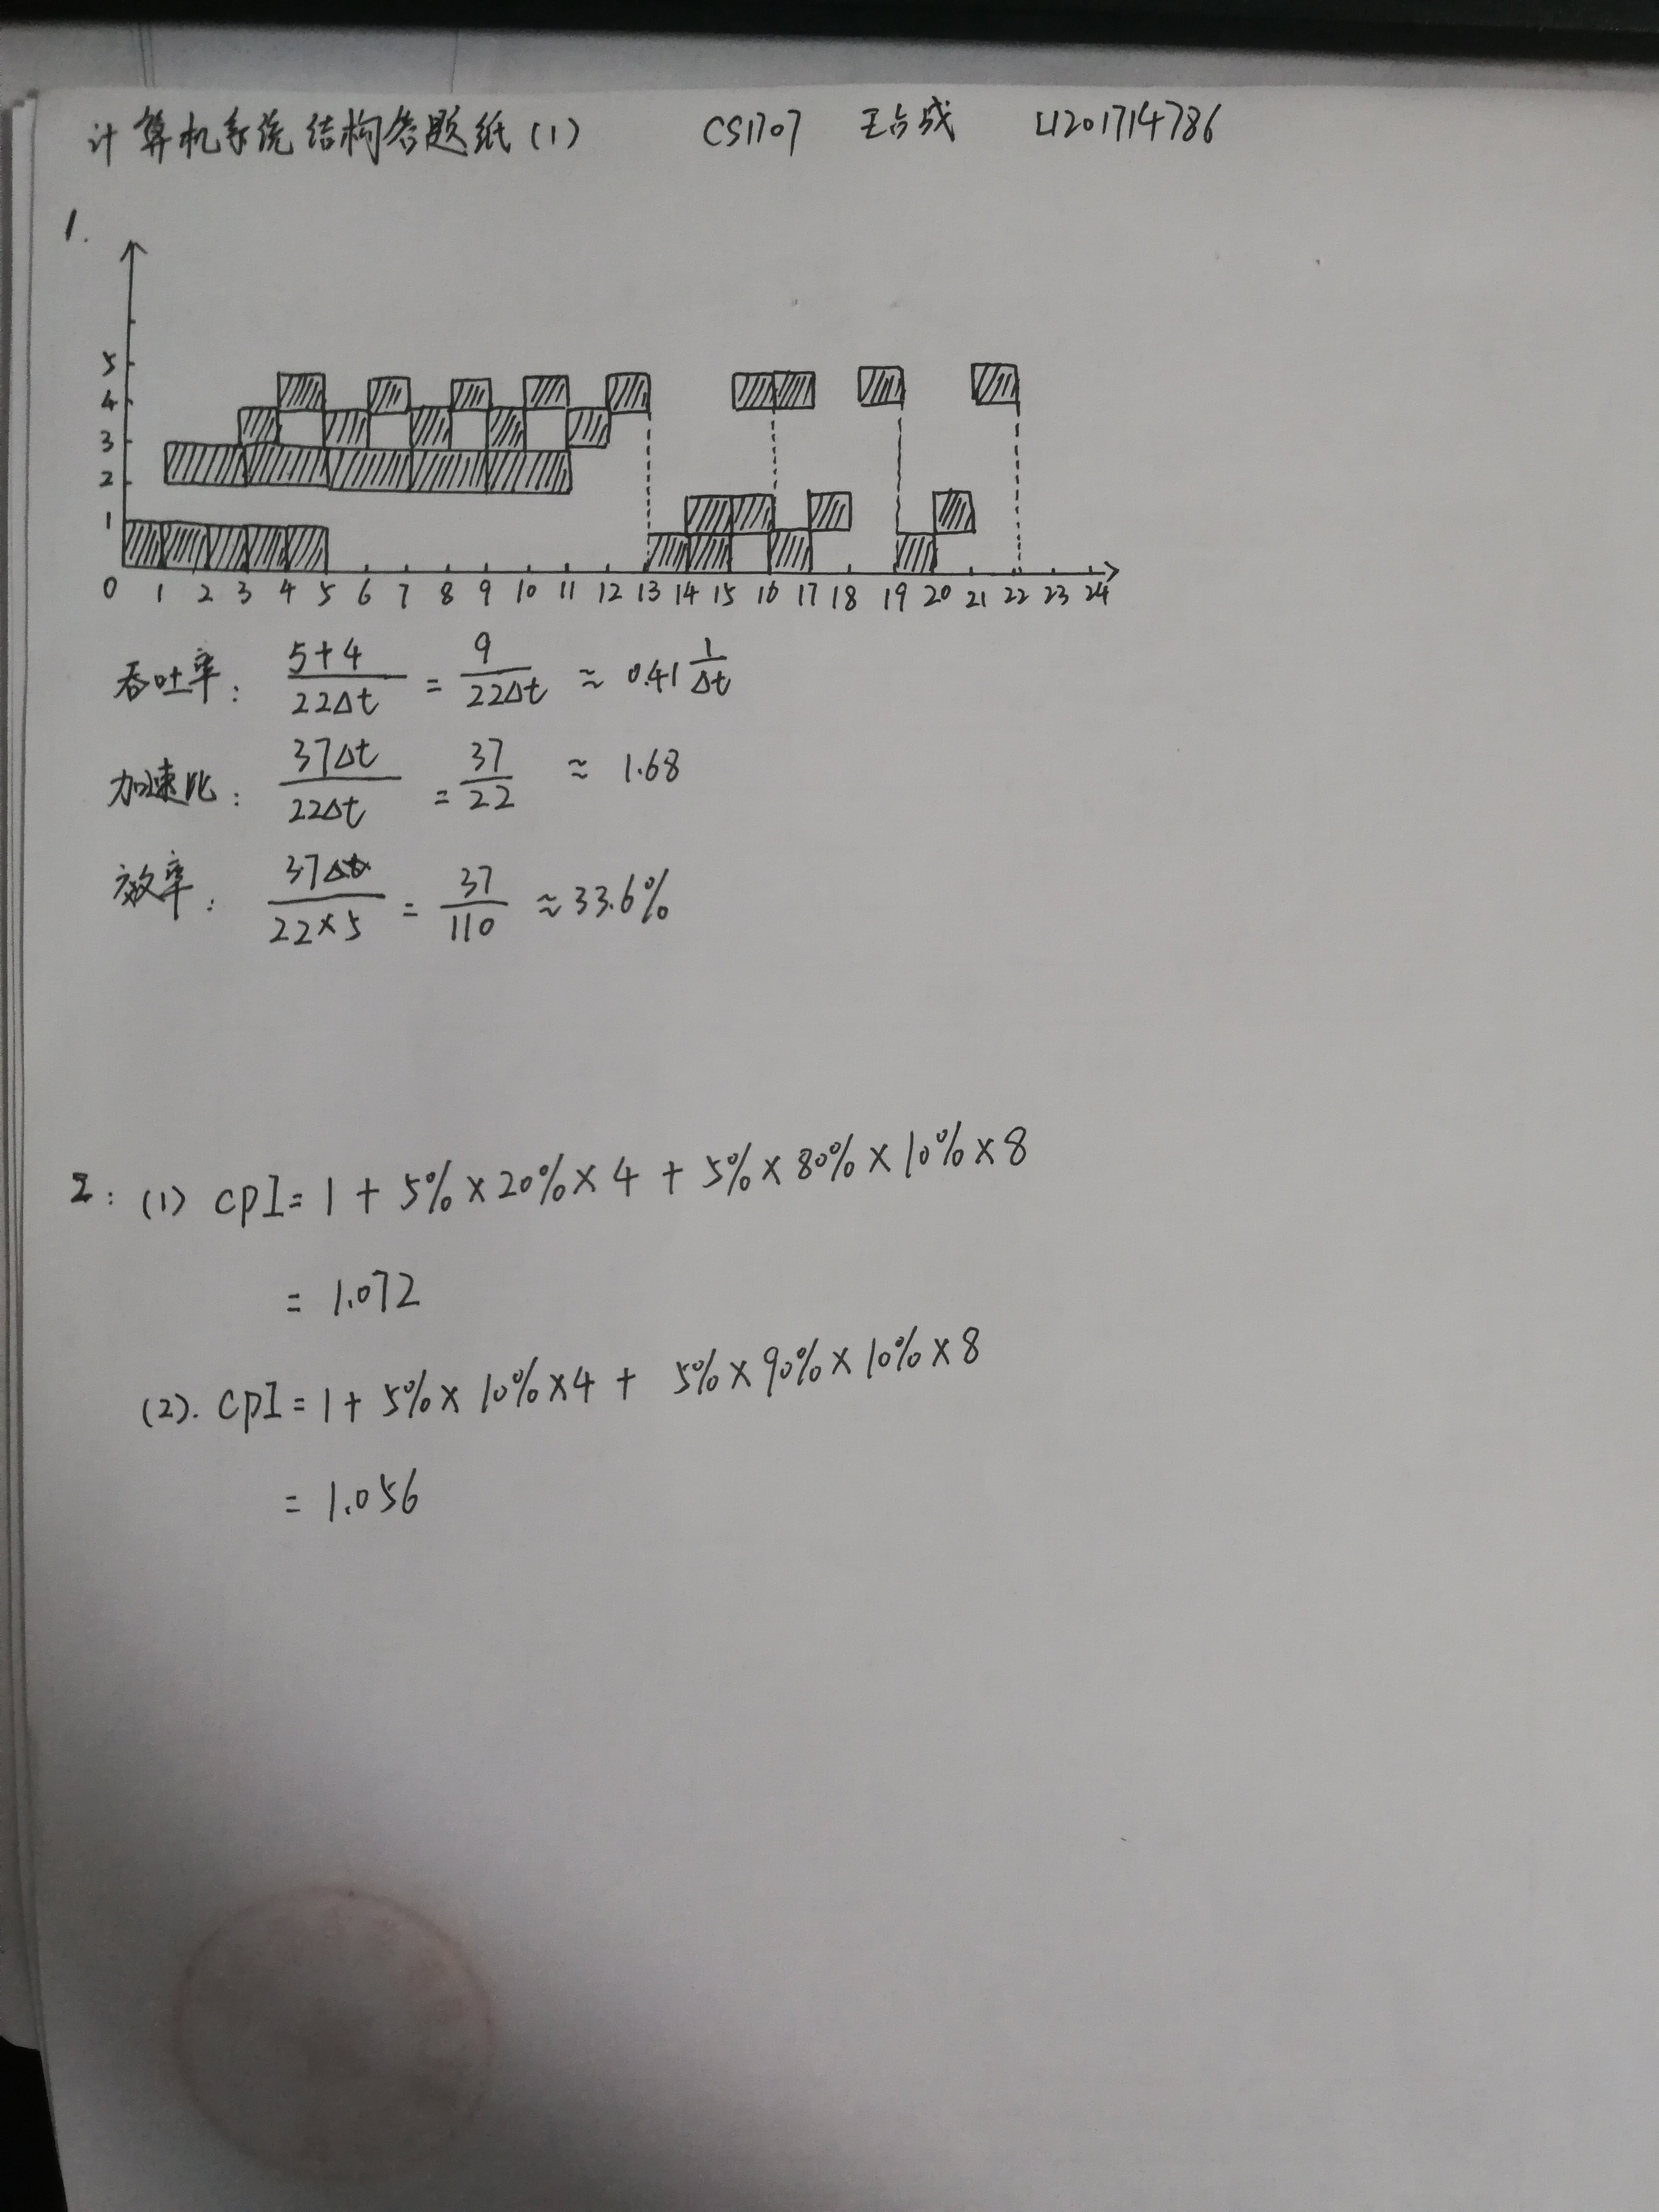 计算机系统结构答题纸(1) CS1707 王占成 U201714786
1.
5
4
3
2
1
0 1 2 3 4 5 6 7 8 9 10 11 12 13 14 15 16 17 18 19 20 21 22 23 24
吞吐率: (5+4)/(22Δt) = 9/(22Δt) ≈ 0.41 1/Δt
加速比: 37Δt/22Δt = 37/22 ≈ 1.68
效率: 37/(22×5) = 37/110 ≈ 33.6%
2: (1) CPI = 1 + 5% × 20% × 4 + 5% × 80% × 10% × 8
= 1.072
(2). CPI = 1 + 5% × 10% × 4 + 5% × 90% × 10% × 8
= 1.056